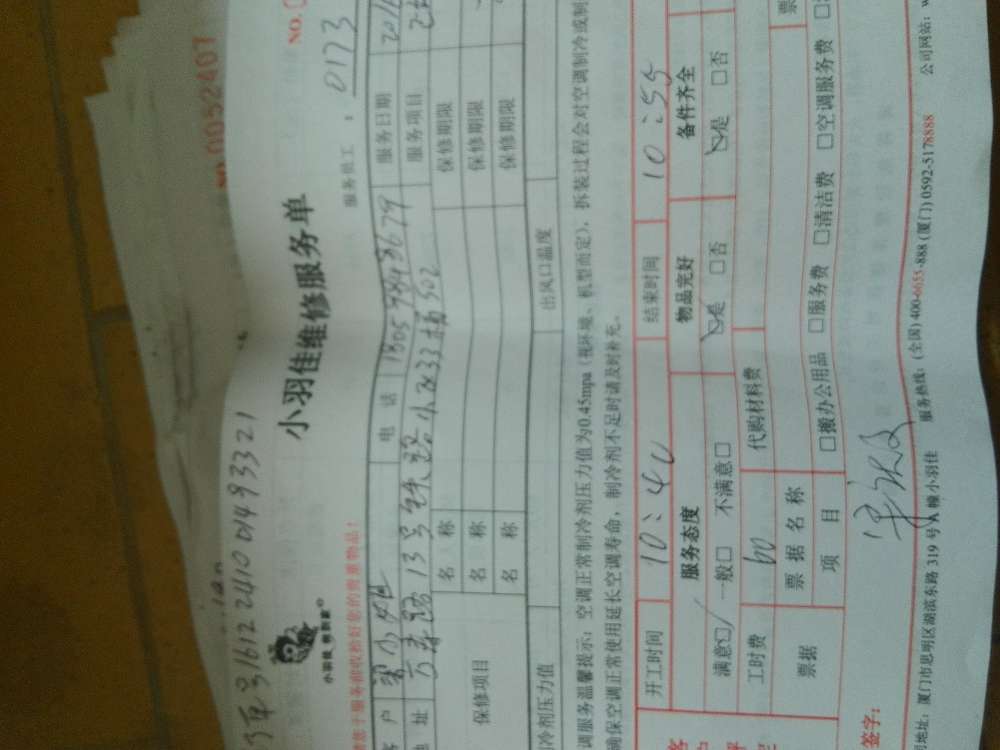 NO.00552407
订单号16122410001493321
NO.
小羽佳维修服务单
小羽佳 帮到家
服务员工：0173
请您于服务前收拾好您的贵重物品！
户 电话 服务日期
地址 13号 小区33栋502 服务项目
保修项目 名称 保修期限
名称 保修期限
名称 保修期限
冷剂压力值 出风口温度
调服务温馨提示：空调正常制冷剂压力值为0.45mpa（视环境、机型而定），拆装过程会对空调制冷或制
确保空调正常使用延长空调寿命，制冷剂不足时请及时补充。
开工时间 10:40 结束时间 10:55
服务态度 物品完好 备件齐全
满意□ 一般□ 不满意□ □是 □否 □是 □否
工时费 60 代购材料费
票据 票据名称 票
项目 □搬办公用品 □服务费 □清洁费 □空调服务费
签字：
地址：厦门市思明区湖滨东路 319 号 A 幢小羽佳 服务热线：(全国) 400-6655-888 (厦门) 0592-5178888 公司网站：w